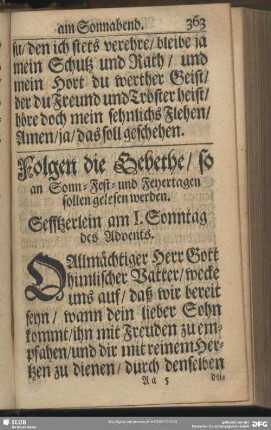 am Sonnabend. 363
su/ den ich stets verehre/ bleibe ja
mein Schutz und Rath/ und
mein Hort du werther Geist/
der du Freund und Tröster heist/
höre doch mein sehnlichs Flehen/
Amen/ ja/ das soll geschehen.
Folgen die Gebethe/ so
an Sonn- Fest- und Feyertagen
sollen gelesen werden.
Seufftzerlein am I. Sonntag
des Advents.
O Allmächtiger Herr Gott
himlischer Vatter/ wecke
uns auf/ daß wir bereit
seyn/ wann dein lieber Sohn
kommt/ ihn mit Freuden zu em-
pfahen/ und dir mit reinem Her-
tzen zu dienen/ durch denselben
Aa 5
SLUB
DFG